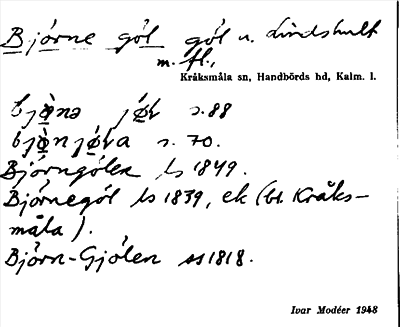 Björne göl göl u. Lindshult
m. fl.,
Kråksmåla sn, Handbörds hd, Kalm. l.
s. 88
s. 70.
Björngölen ls 1849.
Björnegöl ls 1839, ek (bl. Kråks-
måla).
Björn-Gjölen ss 1818.
Ivar Modéer 1948